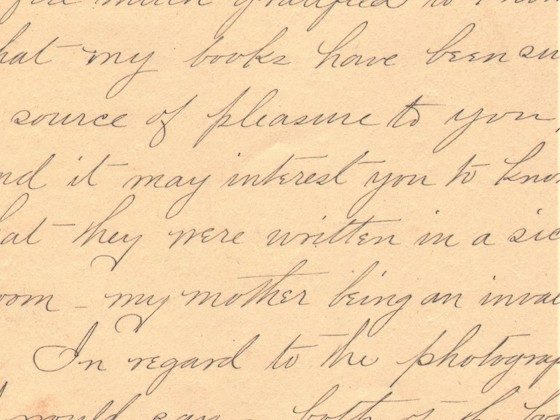 much gratified to
hat my books have been su
source of pleasure to you
nd it may interest you to know
hat they were written in a sic
oom - my mother being an inval
In regard to the photograp
would say - both of